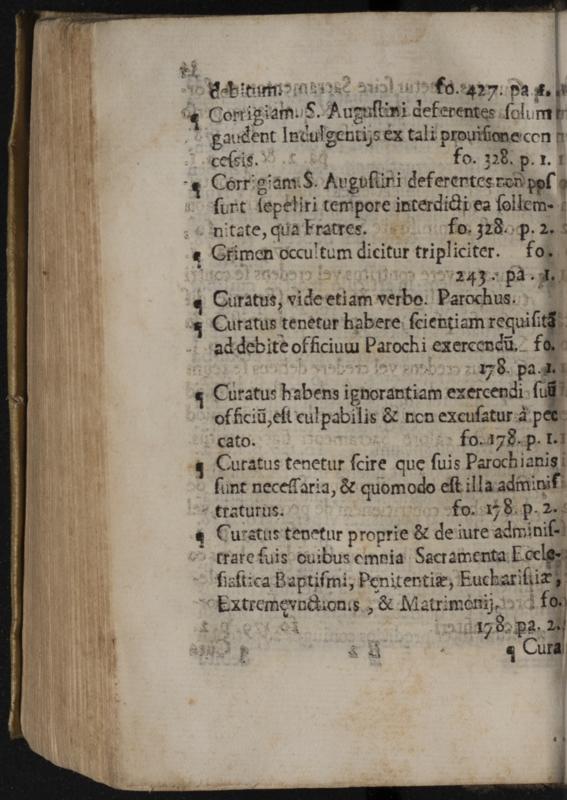 debitum. fo. 427. pa. 1.
¶ Corrigiam S. Augustini deferentes solum
gaudent Indulgentijs ex tali prouisione con
cessis. fo. 328. p. 1.
¶ Corrigiam S. Augustini deferentes non pos
sunt sepeliri tempore interdicti ea sollem-
nitate, qua Fratres. fo. 328. p. 2.
¶ Crimen occultum dicitur tripliciter. fo.
243. pa. 1.
¶ Curatus, vide etiam verbo. Parochus.
¶ Curatus tenetur habere scientiam requisitã
ad debitè officium Parochi exercendũ. fo.
178. pa. 1.
¶ Curatus habens ignorantiam exercendi suũ
officiũ, est culpabilis & non excusatur à pec
cato. fo. 178. p. 1.
¶ Curatus tenetur scire quę suis Parochianis
sunt necessaria, & quomodo est illa adminis
traturus. fo. 178. p. 2.
¶ Curatus tenetur proprie & de iure adminis-
trare suis ouibus omnia Sacramenta Eccle-
siastica Baptismi, Pęnitentiæ, Eucharistiæ,
Extremęvnctionis, & Matrimonij. fo.
178. pa. 2.
¶ Cura